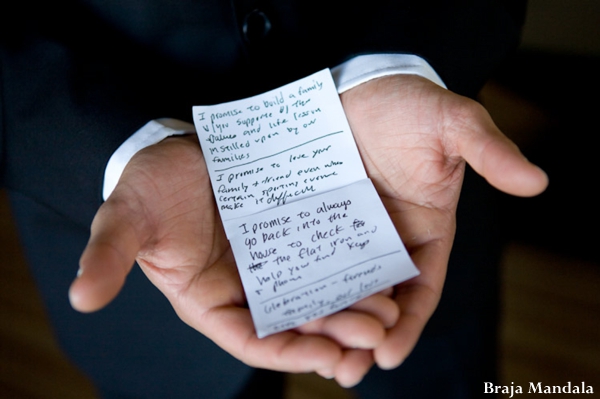 I promise to build a family
w/ you supported by the
values and life lesson
instilled upon by our
families
I promise to love your
family + friend even when
certain sporting events
make it difficult
I promise to always
go back into the
house to check
the flat iron and
help you find keys
+ phone
Celebration - friends
family
Braja Mandala